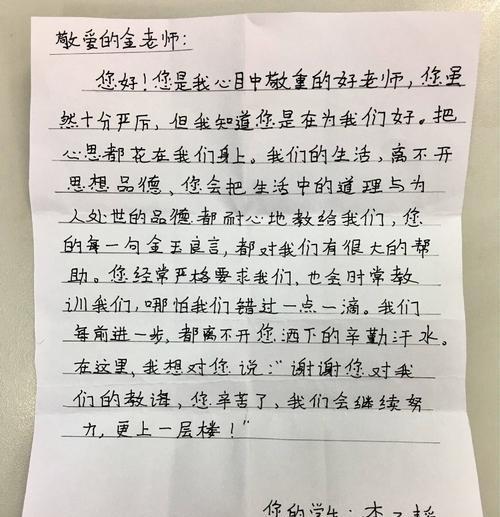 敬爱的金老师:
您好!您是我心目中敬重的好老师,您虽
然十分严厉,但我知道您是在为我们好。把
心思都花在我们身上。我们的生活,离不开
思想品德、您会把生活中的道理与为
人处世的品德都耐心地教给我们,您
的每一句金玉良言,都对我们有很大的帮
助。您经常严格要求我们、也会时常教
训我们,哪怕我们错过一点一滴。我们
每前进一步,都离不开您洒下的辛勤汗水。
在这里,我想对您说:"谢谢您对我
们的教诲,您辛苦了,我们会继续努
力,更上一层楼!"
您的学生:李